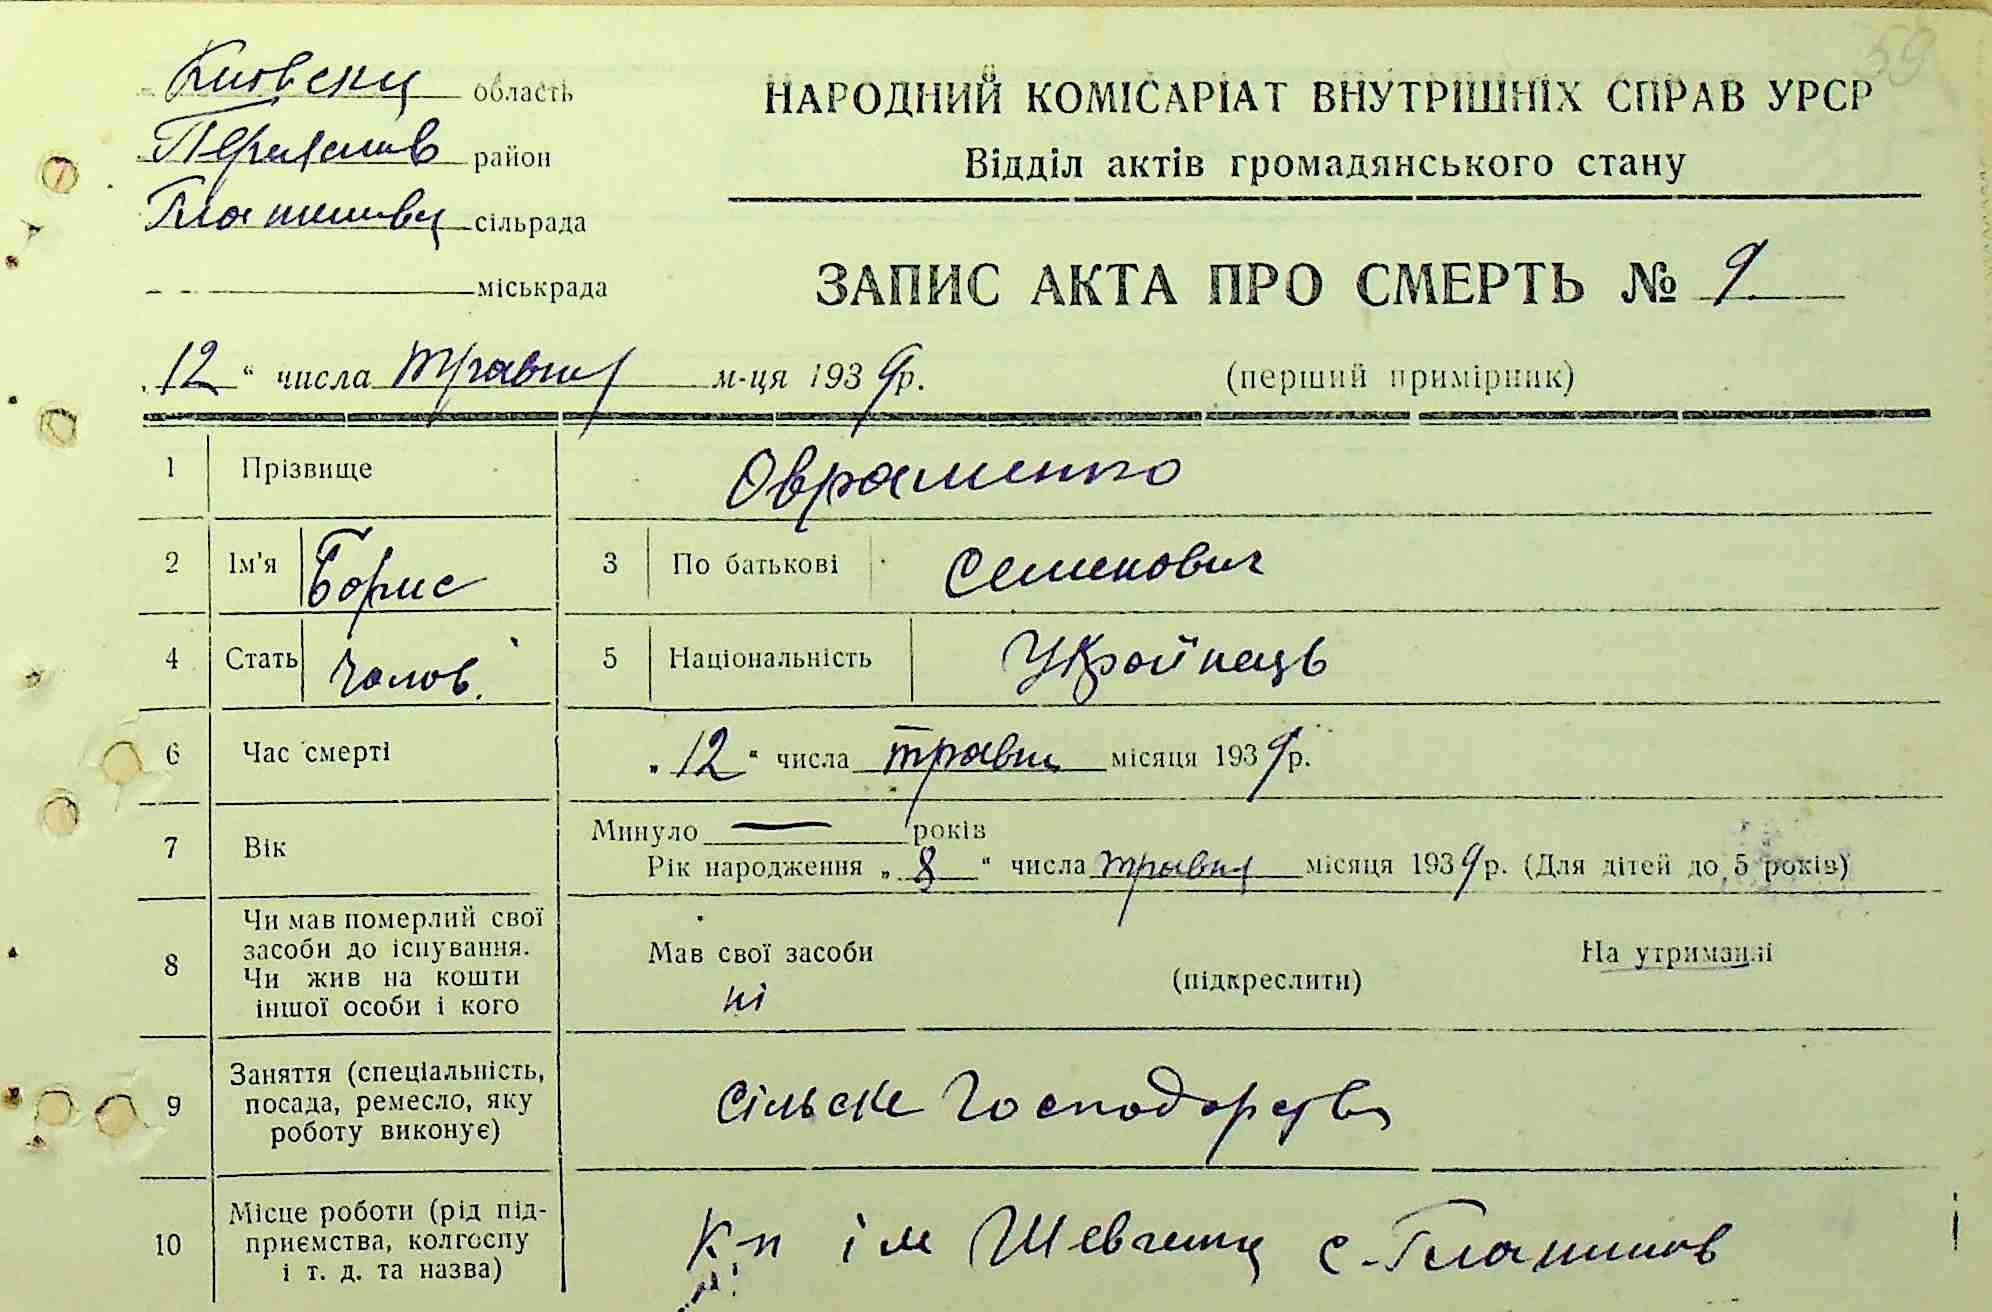 59
Київську область
Переяслав район
Гланишівську сільрада
міськрада
НАРОДНИЙ КОМІСАРІАТ ВНУТРІШНІХ СПРАВ УРСР
Відділ актів громадянського стану
ЗАПИС АКТА ПРО СМЕРТЬ № 9
„12“ числа травня м-ця 1939 р.
(перший примірник)
1 Прізвище Овраменко
2 Ім'я Борис 3 По батькові Семенович
4 Стать Чолов. 5 Національність Українець
6 Час смерті „12“ числа травня місяця 1939 р.
7 Вік Минуло — років
Рік народження „8“ числа травня місяця 1939 р. (Для дітей до 5 років)
8 Чи мав померлий свої засоби до існування. Чи жив на кошти іншої особи і кого
Мав свої засоби (підкреслити) На утриманні
ні
9 Заняття (спеціальність, посада, ремесло, яку роботу виконує) сільське господарство
10 Місце роботи (рід підприємства, колгоспу і т. д. та назва) ім Шевченка с.